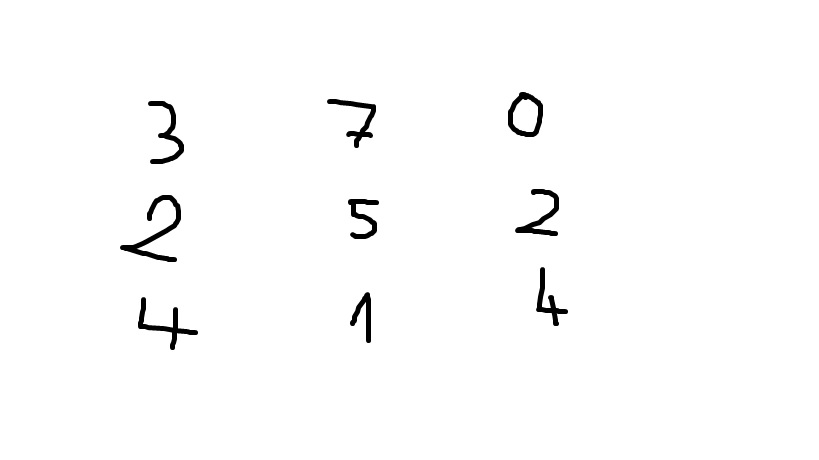 3 7 0
2 5 2
4 1 4